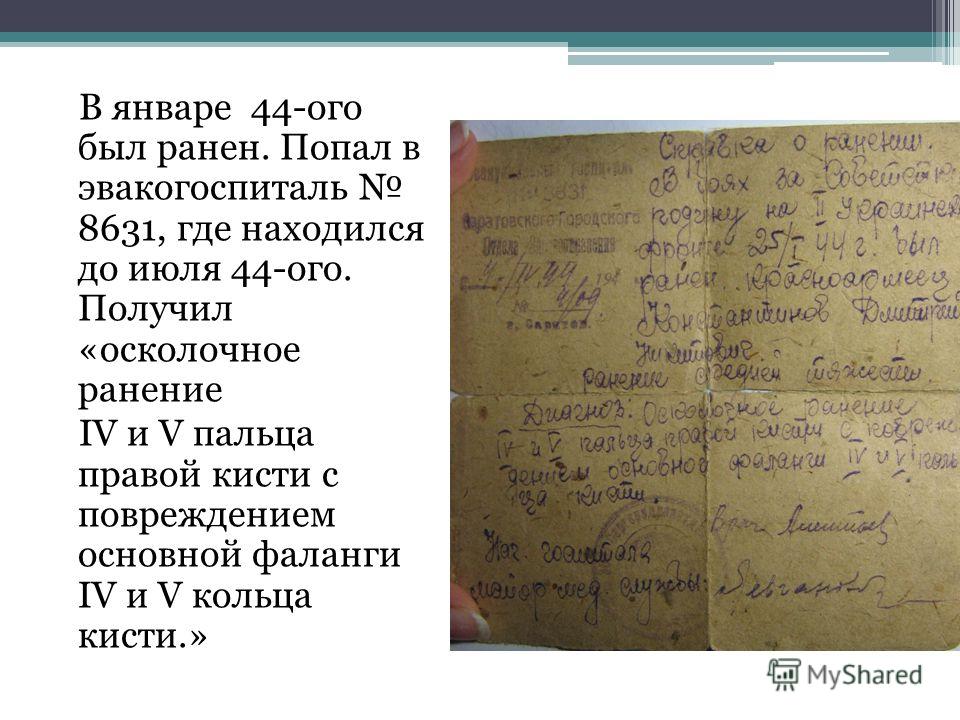 В январе 44-ого
был ранен. Попал в
эвакогоспиталь №
8631, где находился
до июля 44-ого.
Получил
«осколочное
ранение
IV и V пальца
правой кисти с
повреждением
основной фаланги
IV и V кольца
кисти.»
Справка о ранении.
В боях за Советск
родину на II Украинск
фронте 25/I 44 г. был
ранен красноармеец
Константинов Дмитрий
Никитович.
ранение средней тяжести.
8631
Саратовского Городского
Отдела
г. Саратов
Диагноз: Осколочное ранение
IV и V пальца правой кисти с повреж
дением основной фаланги IV и V паль
ца кисти.
Врач
Нач. госпиталя
майор мед. службы:
MyShared